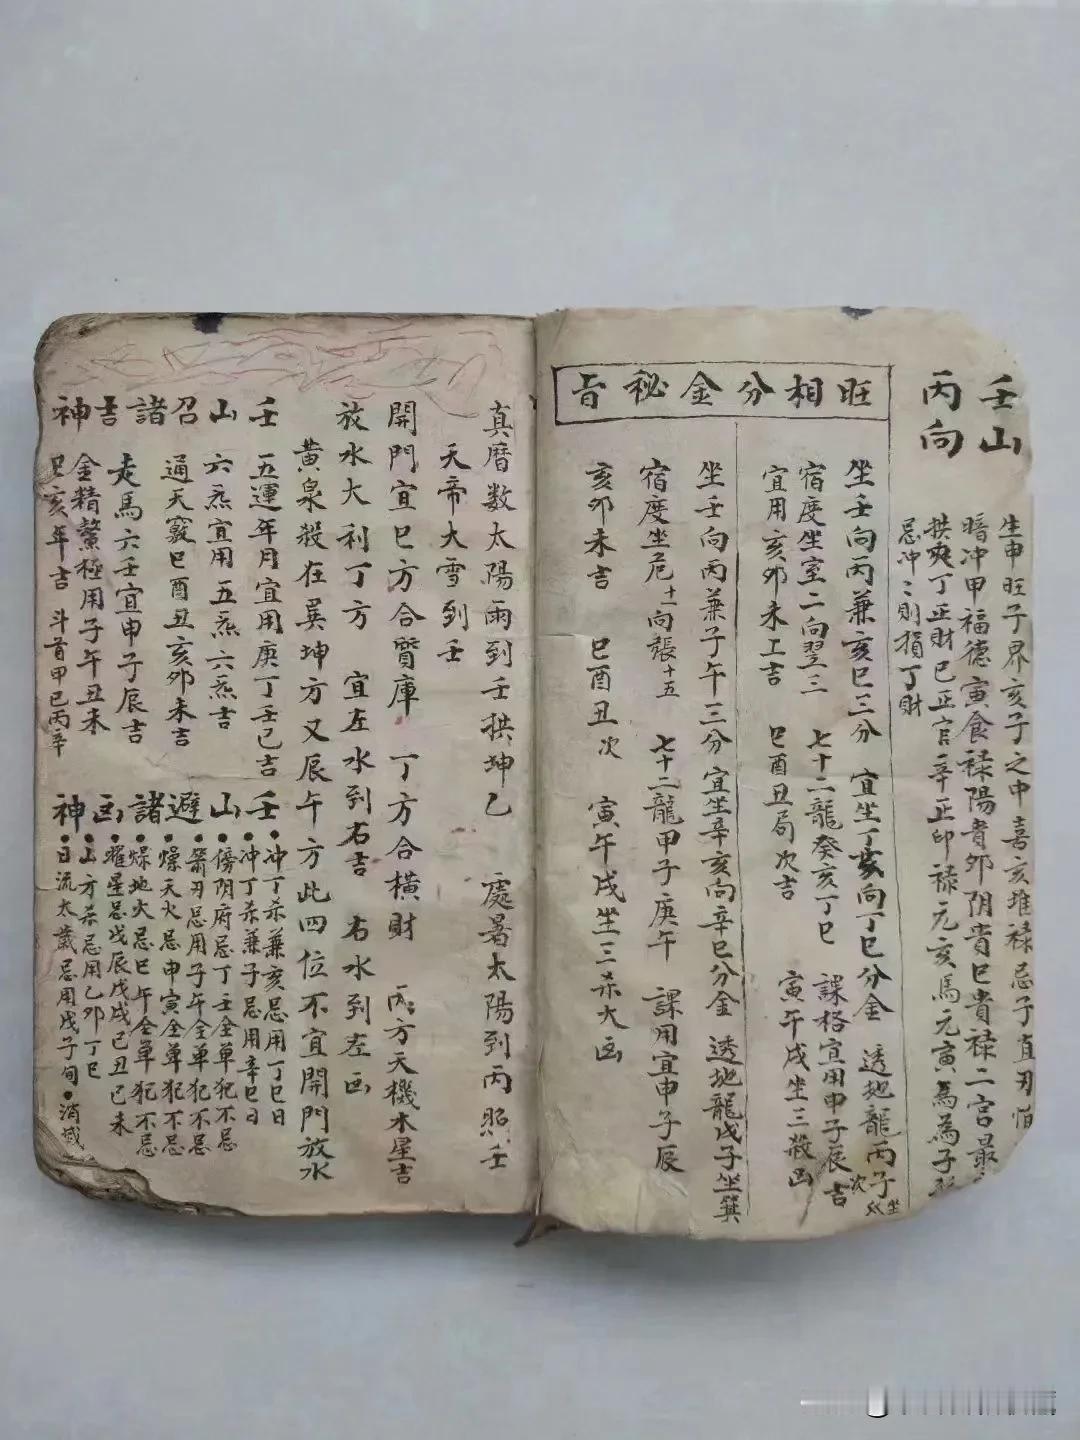 壬山
丙向
生申旺子界亥子之中喜亥堆祿忌子直刃怕
暗冲甲福德寅食祿陽貴卯阴貴巳貴祿二宮最
拱爽丁正財巳正官辛正印祿元亥馬元寅為為子
忌冲〻則損丁財
旺相分金秘旨
坐壬向丙兼亥巳三分 宜坐丁亥向丁巳分金 透地龍丙子坐
宿度坐室二向翌三 七十二龍癸亥丁巳 課格宜用申子辰吉次
宜用亥卯未工吉 巳酉丑局次吉 寅午戌坐三殺凶
坐壬向丙兼子午三分宜坐辛亥向辛巳分金 透地龍戊子坐箕
宿度坐危十一向張十五 七十二龍甲子庚午 課用宜申子辰
亥卯未吉 巳酉丑次 寅午戌坐三杀大凶
真曆数太陽雨到壬拱坤乙 處暑太陽到丙照壬
天帝大雪到壬
開門宜巳方合貭庫 丁方合橫財 丙方天機木星吉
放水大利丁方 宜左水到右吉 右水到左凶
黄泉殺在巽坤方又辰午方此四位不宜開門放水
壬山召諸吉神
五運年月宜用庚丁壬己吉
六炁宜用五炁六炁吉
通天竅巳酉丑亥卯未吉
走馬六壬宜申子辰吉
金精鰲極用子午丑未
巳亥年吉 斗首甲巳丙辛
壬山避諸凶神
●冲丁杀兼亥忌用丁巳日
●冲丁杀兼子忌用辛巳日
●傍阴府忌丁壬全单犯不忌
●箭刃忌用子午全单犯不忌
●燥天火忌申寅全单犯不忌
●燥地火忌巳午全单犯不忌
●羅星忌戊辰戊戌己丑己未
●山方杀忌用乙卯丁巳
●日流太歲忌用戊子旬●消滅